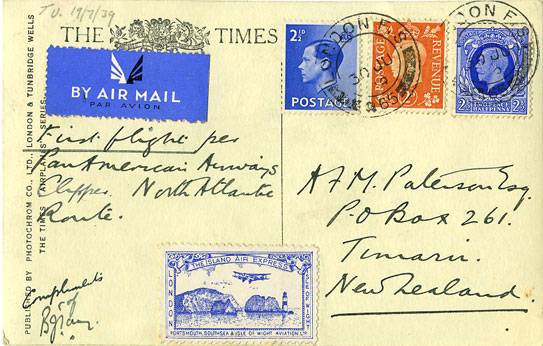 T.U. 19/7/39
THE TIMES
BY AIR MAIL
PAR AVION
2½D
POSTAGE
POSTAGE
REVENUE
LONDON F.S.
30 JU
LONDON F.S.
30 JU
HALFPENNY
First flight per
Pan American Airways
Clipper. North Atlantic
Route.
Compliments
of
A.F.M. Paterson Esq.
P.O Box 261.
Timaru.
New Zealand.
THE ISLAND AIR EXPRESS
LONDON
I. OF WIGHT
PORTSMOUTH, SOUTHSEA & ISLE OF WIGHT AVIATION LTD
PUBLISHED BY PHOTOCHROM CO., LTD., LONDON & TUNBRIDGE WELLS
THE TIMES "AIRPLANES" SERIES.